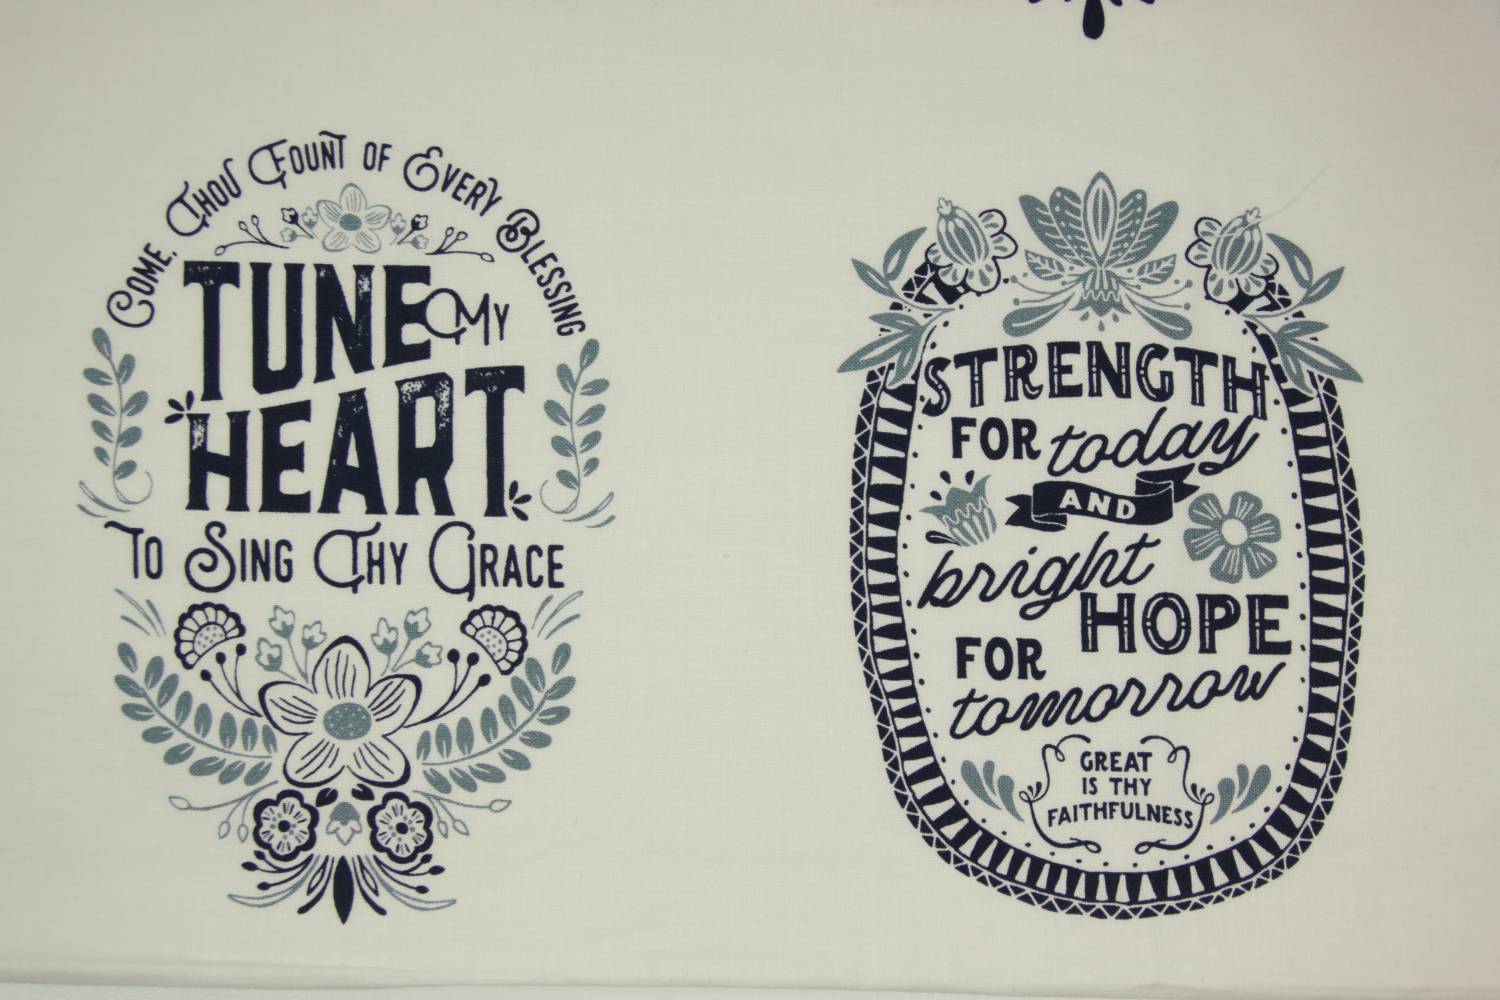 Come, Thou Fount of Every Blessing
TUNE My
HEART
To Sing Thy Grace
STRENGTH
FOR today
AND
bright
HOPE
FOR
tomorrow
GREAT
IS THY
FAITHFULNESS